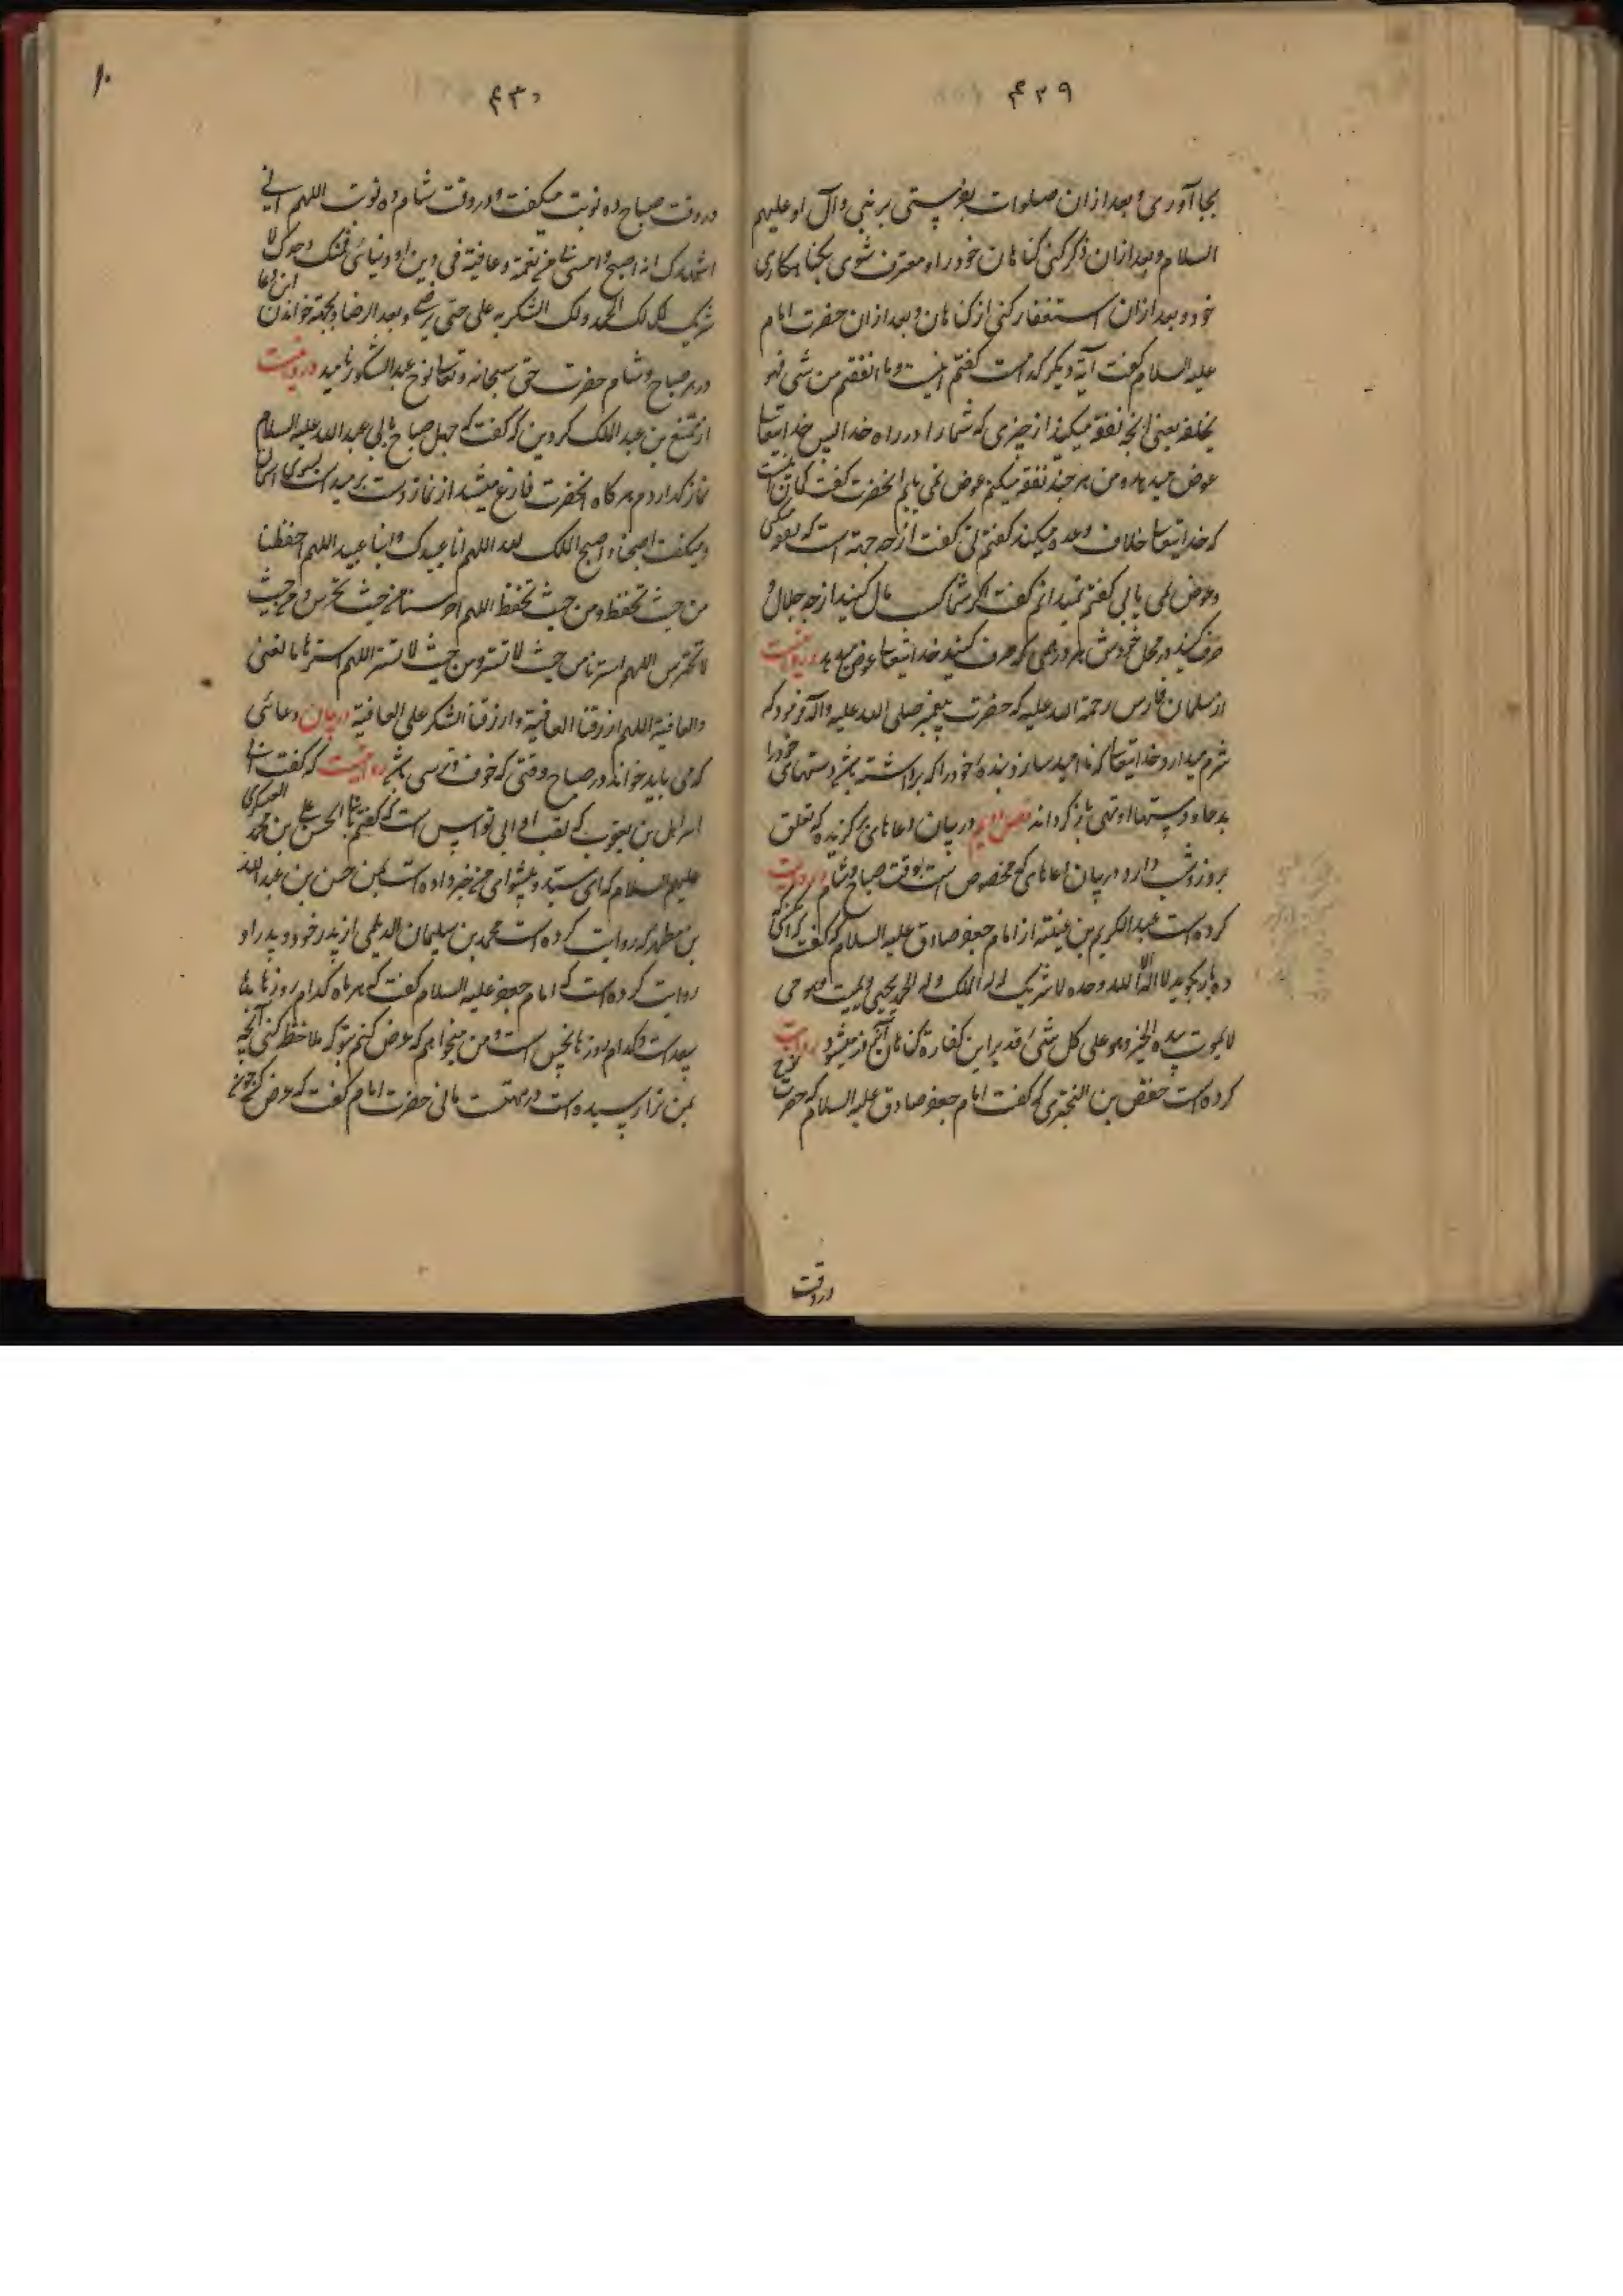 ۴۲۹
بجا آوری و بعد از ان صلوات بفرستی بر نبی و آل او علیهم
السلام و بعد از ان ذکر کنی کناهان خود را و معترف شوی بکناهکاری
خود و بعد از ان استغفار کنی از کناهان و بعد از ان حضرت امام
علیه السلام کفت آیه دیکر کدامست کفتم اینست و ما انفقتم من شی فهو
یخلفه یعنی انچه نفقه میکنید از چیزی که شما را در راه خدا پس خدایتعالی
عوض میدهد و من هر چند نفقه میکنم عوض نمی یابم انحضرت کفت کمان تو اینست
که خدایتعالی خلاف وعده میکند کفتم نی کفت از چه جهة است که میکوئی
و عوض نمی یابی کفتم نمیدانم کفت اکر شما کسب مال کنید از وجه حلال و
صرف کنید در محل خودش هر درهمی که صرف کنید خدایتعالی عوض میدهد روایتست
از سلمان فارس رحمة الله علیه که حضرت پیغمبر صلی الله علیه و آله فرمود که
شرم میدارد خدایتعالی که ناامید سازد بنده خود را که برداشته باشد دستهای خود را
بدعا و دستها او تهی باز کرداند فصل دهم در بیان دعاهای برکزیده که تعلق
بروز و شب دارد در بیان دعاهای که مخصوص است بوقت صباح و شام روایت
کرده است عبد الکریم بن عتبه از امام جعفر صادق علیه السلام که کفت هر که
ده بار بکوید لا اله الا الله وحده لا شریک له له الملک و له الحمد یحیی و یمیت و هو حی
لا یموت بیده الخیر و هو علی کل شیء قدیر این کفارة کناهان آنروز میشود روایت
کرده است حفص بن البختری که کفت امام جعفر صادق علیه السلام که حضرت نوح
در وقت
۴۳۰
در وقت صباح ده نوبت میکفت و در وقت شام ده نوبت اللهم انی
اشهدک انه اصبح و امسی بی من نعمة و عافیة فی دین او دنیا فمنک وحدک لا
شریک لک لک الحمد و لک الشکر به علی حتی ترضی و بعد الرضا و بجهة خواندن این دعا
در هر صباح و شام حضرت حق سبحانه و تعالی نوح عبدا لشکور نامید روایتست
از مسمع بن عبد الملک کردین که کفت که چهل صباح با ابی عبد الله علیه السلام
نماز کذاردم هر کاه انحضرت فارغ میشد از نماز دست بر میداشت بسوی آسمان
و میکفت اصبحنا و اصبح الملک لله اللهم انا عبیدک و ابناء عبیدک اللهم احفظنا
من حیث نحتفظ و من حیث لا نحتفظ اللهم احرسنا من حیث نحترس و من حیث
لا نحترس اللهم استرنا من حیث نستتر و من حیث لا نستتر اللهم استرنا بالغنی
و العافیة اللهم ارزقنا العافیة و ارزقنا الشکر علی العافیة در بیان دعائی
که می باید خواند در صباح وقتی که خوف و ترسی باشد روایتست که کفت
سهل بن یعقوب که لقب او ابی نواس است که کفتم بابی الحسن علی بن محمد العسکری
علیهم السلام که ای سید و پیشوای من خبر داده است بمن حسن بن عبد الله
بن مطهر که روایت کرده است محمد بن سلیمان الدیلمی از پدر خود و پدر او
روایت کرده است که امام جعفر علیه السلام کفت که هر ماه کدام روزها
سعد است و کدام روزها نحس است و من میخواهم که عرض کنم بتو که ملاحظه کنی آنچه
بمن رسیده است حضرت امام کفت که عرض کن
۱۰